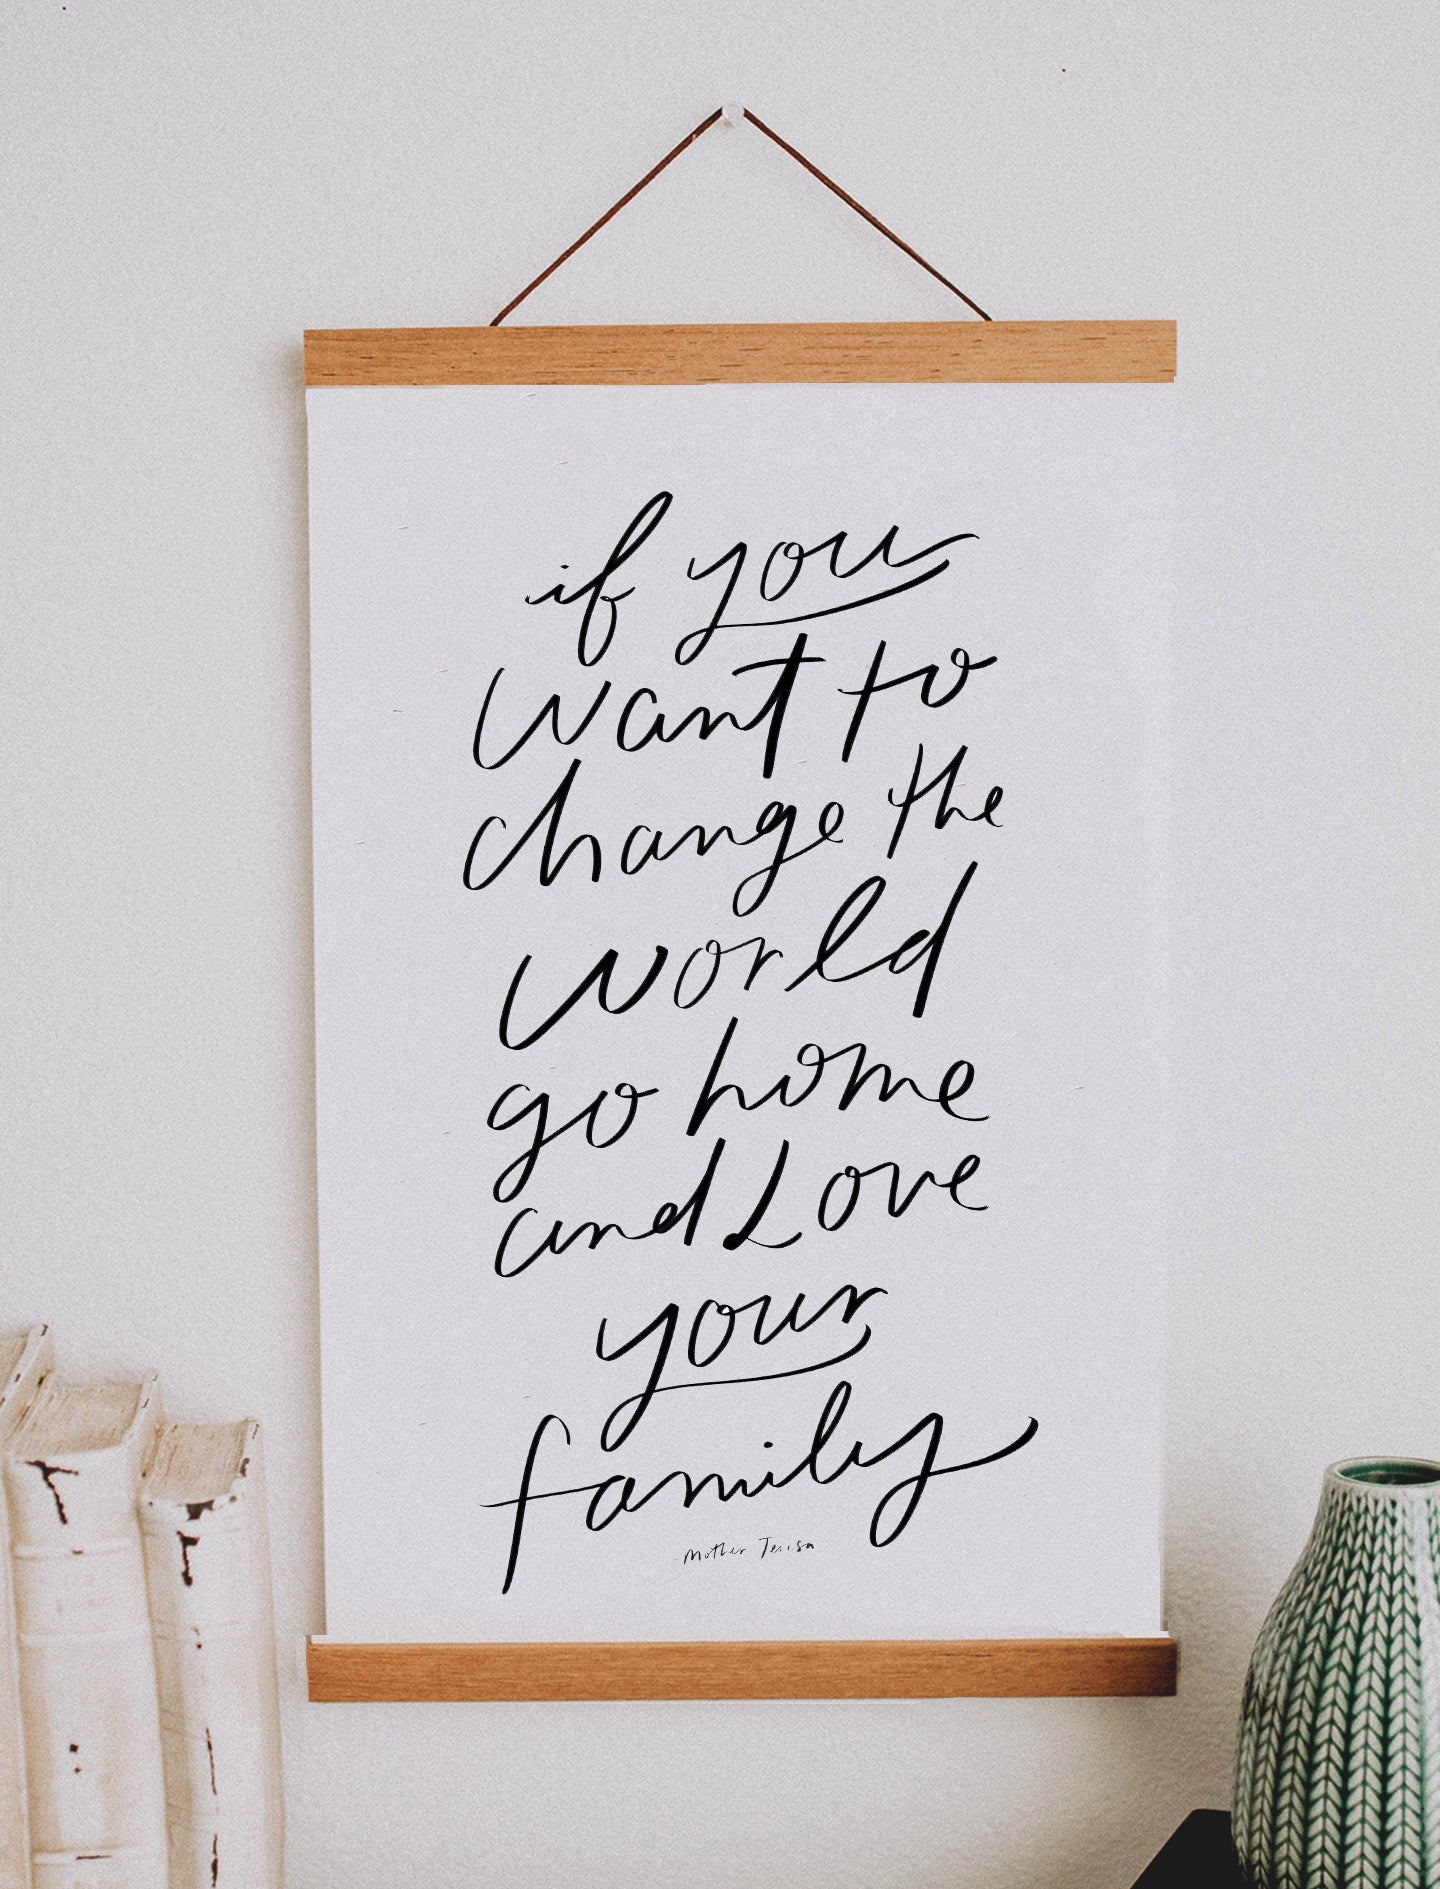 if you
want to
change the
world
go home
and Love
your
family
Mother Teresa